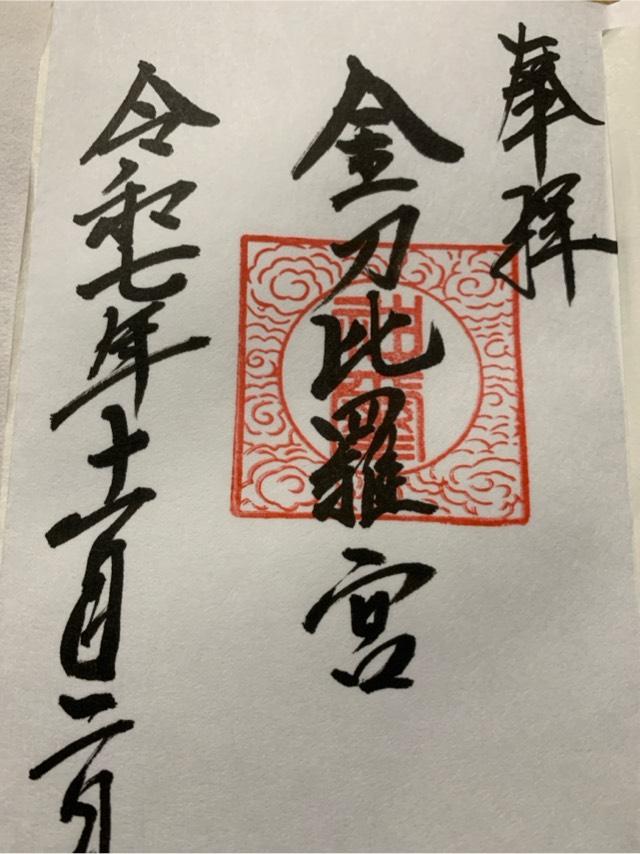 奉拝
金刀比羅宮
令和七年十一月二日